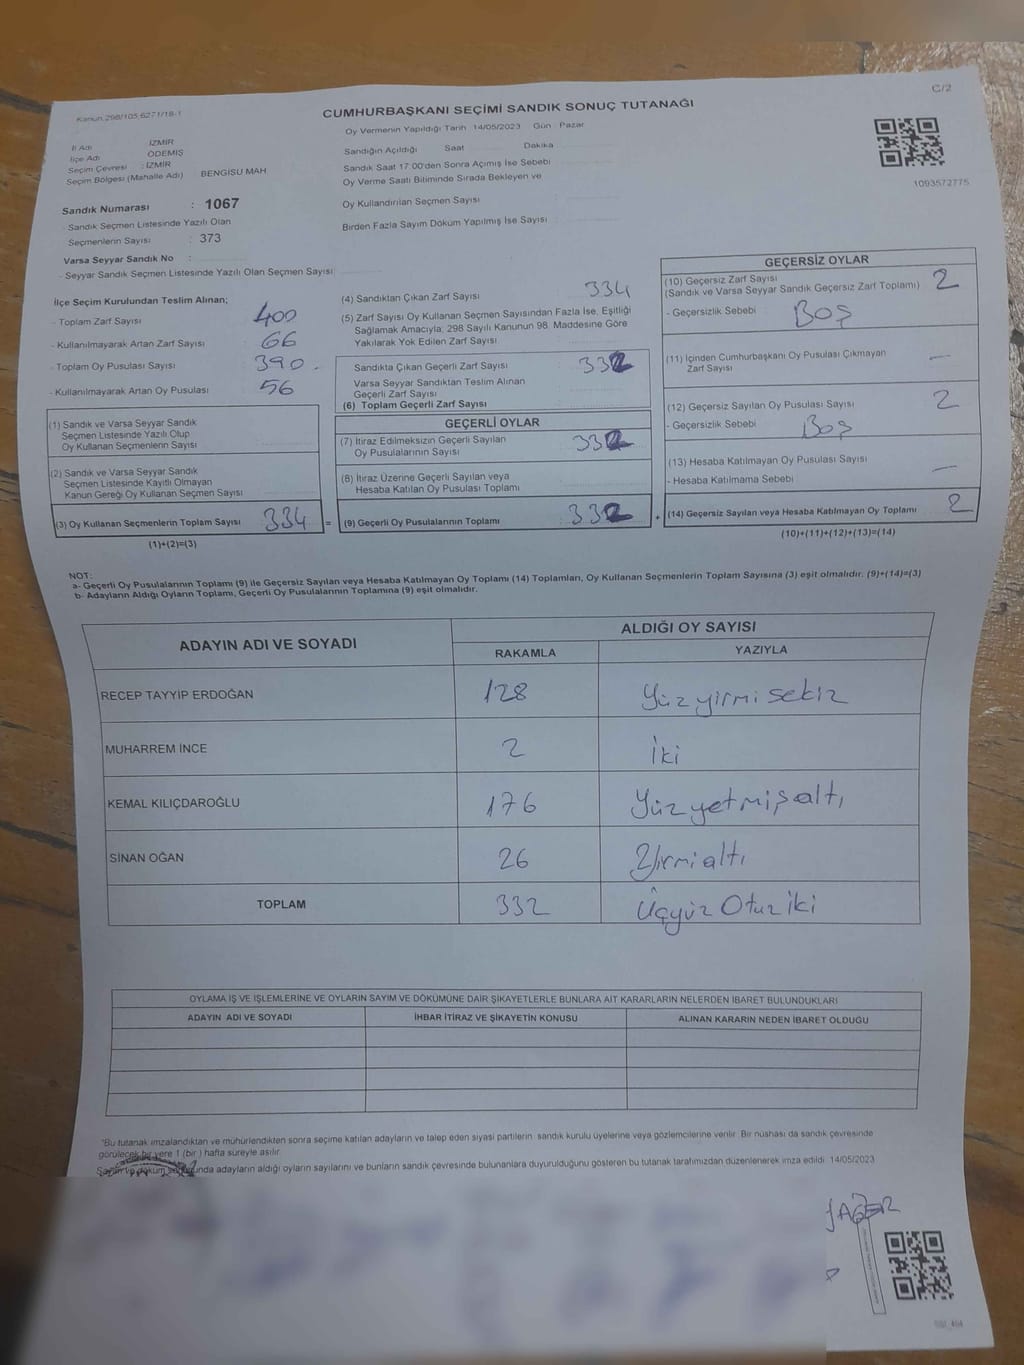 C/2
Kanun 298/105,6271/18-1
CUMHURBAŞKANI SEÇİMİ SANDIK SONUÇ TUTANAĞI
Oy Vermenin Yapıldığı Tarih 14/05/2023 Gün : Pazar
İl Adı : İZMİR
İlçe Adı : ÖDEMİŞ
Seçim Çevresi : İZMİR
Seçim Bölgesi (Mahalle Adı) BENGİSU MAH
Sandığın Açıldığı Saat Dakika
Sandık Saat 17:00'den Sonra Açımış İse Sebebi
Oy Verme Saati Bitiminde Sırada Bekleyen ve
Oy Kullandırılan Seçmen Sayısı
Birden Fazla Sayım Döküm Yapılmış İse Sayısı
1093572775
Sandık Numarası : 1067
- Sandık Seçmen Listesinde Yazılı Olan
Seçmenlerin Sayısı : 373
Varsa Seyyar Sandık No :
- Seyyar Sandık Seçmen Listesinde Yazılı Olan Seçmen Sayısı
İlçe Seçim Kurulundan Teslim Alınan;
- Toplam Zarf Sayısı 400
- Kullanılmayarak Artan Zarf Sayısı 66
- Toplam Oy Pusulası Sayısı 390
- Kullanılmayarak Artan Oy Pusulası 56
(1) Sandık ve Varsa Seyyar Sandık
Seçmen Listesinde Yazılı Olup
Oy Kullanan Seçmenlerin Sayısı
(2) Sandık ve Varsa Seyyar Sandık
Seçmen Listesinde Kayıtlı Olmayan
Kanun Gereği Oy Kullanan Seçmen Sayısı
(3) Oy Kullanan Seçmenlerin Toplam Sayısı 334 =
(1)+(2)=(3)
(4) Sandıktan Çıkan Zarf Sayısı 334
(5) Zarf Sayısı Oy Kullanan Seçmen Sayısından Fazla İse, Eşitliği
Sağlamak Amacıyla; 298 Sayılı Kanunun 98. Maddesine Göre
Yakılarak Yok Edilen Zarf Sayısı
Sandıkta Çıkan Geçerli Zarf Sayısı 332
Varsa Seyyar Sandıktan Teslim Alınan
Geçerli Zarf Sayısı
(6) Toplam Geçerli Zarf Sayısı
GEÇERLİ OYLAR
(7) İtiraz Edilmeksizin Geçerli Sayılan
Oy Pusulalarının Sayısı 332
(8) İtiraz Üzerine Geçerli Sayılan veya
Hesaba Katılan Oy Pusulası Toplamı
(9) Geçerli Oy Pusulalarının Toplamı 332 +
GEÇERSİZ OYLAR
(10) Geçersiz Zarf Sayısı 2
(Sandık ve Varsa Seyyar Sandık Geçersiz Zarf Toplamı)
- Geçersizlik Sebebi Boş
(11) İçinden Cumhurbaşkanı Oy Pusulası Çıkmayan
Zarf Sayısı —
(12) Geçersiz Sayılan Oy Pusulası Sayısı 2
- Geçersizlik Sebebi Boş
(13) Hesaba Katılmayan Oy Pusulası Sayısı —
- Hesaba Katılmama Sebebi
(14) Geçersiz Sayılan veya Hesaba Katılmayan Oy Toplamı 2
(10)+(11)+(12)+(13)=(14)
NOT:
a- Geçerli Oy Pusulalarının Toplamı (9) ile Geçersiz Sayılan veya Hesaba Katılmayan Oy Toplamı (14) Toplamları, Oy Kullanan Seçmenlerin Toplam Sayısına (3) eşit olmalıdır. (9)+(14)=(3)
b- Adayların Aldığı Oyların Toplamı, Geçerli Oy Pusulalarının Toplamına (9) eşit olmalıdır.
ADAYIN ADI VE SOYADI ALDIĞI OY SAYISI
RAKAMLA YAZIYLA
RECEP TAYYİP ERDOĞAN 128 Yüzyirmisekiz
MUHARREM İNCE 2 İki
KEMAL KILIÇDAROĞLU 176 Yüzyetmişaltı
SİNAN OĞAN 26 Yirmialtı
TOPLAM 332 Üçyüz Otuz iki
OYLAMA İŞ VE İŞLEMLERİNE VE OYLARIN SAYIM VE DÖKÜMÜNE DAİR ŞİKAYETLERLE BUNLARA AİT KARARLARIN NELERDEN İBARET BULUNDUKLARI
ADAYIN ADI VE SOYADI İHBAR İTİRAZ VE ŞİKAYETİN KONUSU ALINAN KARARIN NEDEN İBARET OLDUĞU
*Bu tutanak imzalandıktan ve mühürlendikten sonra seçime katılan adayların ve talep eden siyasi partilerin sandık kurulu üyelerine veya gözlemcilerine verilir. Bir nüshası da sandık çevresinde
görülecek bir yere 1 (bir ) hafta süreyle asılır.
Sayım ve döküm sonunda adayların aldığı oyların sayılarını ve bunların sandık çevresinde bulunanlara duyurulduğunu gösteren bu tutanak tarafımızdan düzenlenerek imza edildi. 14/05/2023